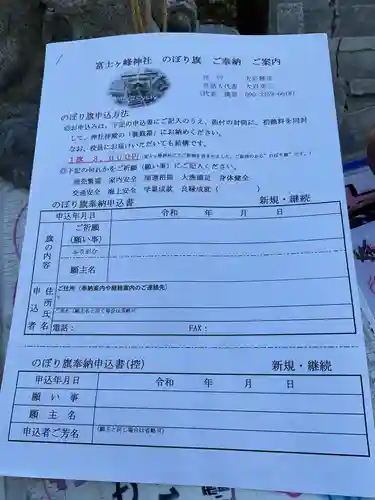 富士ヶ峰神社 のぼり旗 ご奉納 ご案内
のぼり旗申込方法
◎お申込みは、下記の申込書にご記入のうえ、添付の封筒に、初穂料を同封
して、神社拝殿の「賽銭箱」にお納めください。
なお、役員にお届けいただいても結構です。
1旗 3,000円
◎下記の何れかをご祈願(願い事)にご記入ください。
商売繁盛 家内安全 開運招福 大漁満足 身体健全
交通安全 海上安全 学業成就 良縁成就 ( )
のぼり旗奉納申込書 新規・継続
申込年月日 令和 年 月 日
旗の内容
ご祈願
(願い事)
ふりがな
願主名
申込者
住所氏名
ご住所(奉納案内や継続案内のご連絡先)
〒
ご芳名(願主名と同じ場合は省略可)
電話: FAX:
のぼり旗奉納申込書(控) 新規・継続
申込年月日 令和 年 月 日
願い事
願主名
申込者ご芳名 (願主と同じ場合は省略可)